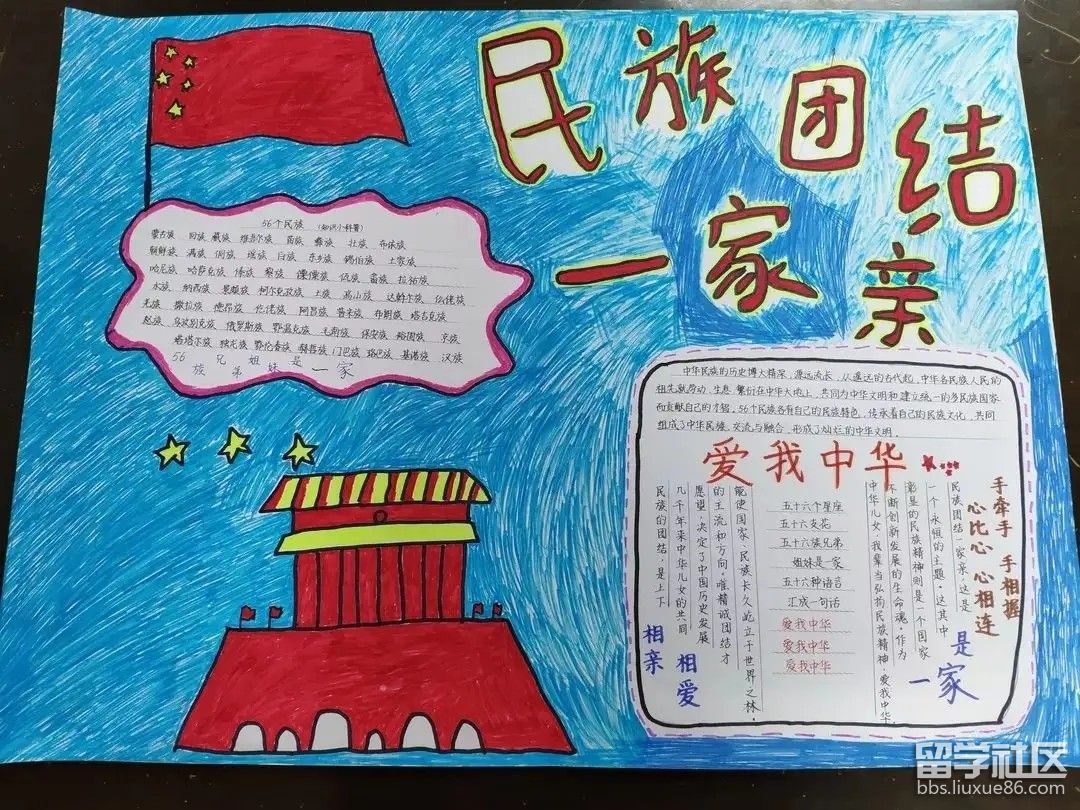 民族团结
一家亲
56个民族 (知识小科普)
蒙古族 回族 藏族 维吾尔族 苗族 彝族 壮族 布依族
朝鲜族 满族 侗族 瑶族 白族 东乡族 锡伯族 土家族
哈尼族 哈萨克族 傣族 黎族 傈僳族 佤族 畲族 拉祜族
水族 纳西族 景颇族 柯尔克孜族 土族 高山族 达斡尔族 仫佬族
羌族 撒拉族 德昂族 仡佬族 阿昌族 普米族 布朗族 塔吉克族
怒族 乌孜别克族 俄罗斯族 鄂温克族 毛南族 保安族 裕固族 京族
塔塔尔族 独龙族 鄂伦春族 赫哲族 门巴族 珞巴族 基诺族 汉族
56 兄 姐 是 一家
族 弟 妹
中华民族的历史博大精深,源远流长,从遥远的古代起,中华各民族人民的
祖先就劳动、生息、繁衍在中华大地上,共同为中华文明和建立统一的多民族国家
而贡献自己的才智。56个民族各有自己的民族特色,传承着自己的民族文化,共同
组成了中华民族,交流与融合,形成了灿烂的中华文明。
爱我中华
手牵手 手相握
心比心 心相连
是
一家
民族团结一家亲,这是
一个永恒的主题。这其中
彰显的民族精神则是一个国家
不断创新发展的生命魂。作为
中华儿女,我辈当弘扬民族精神,爱我中华。
五十六个星座
五十六支花
五十六族兄弟
姐妹是一家
五十六种语言
汇成一句话
爱我中华
爱我中华
爱我中华
能使国家、民族长久屹立于世界之林。
的主流和方向。唯精诚团结才
愿望,决定了中国历史发展
几千年来中华儿女的共同
民族的团结,是上下
相亲
相爱
留学社区
bbs.liuxue86.com